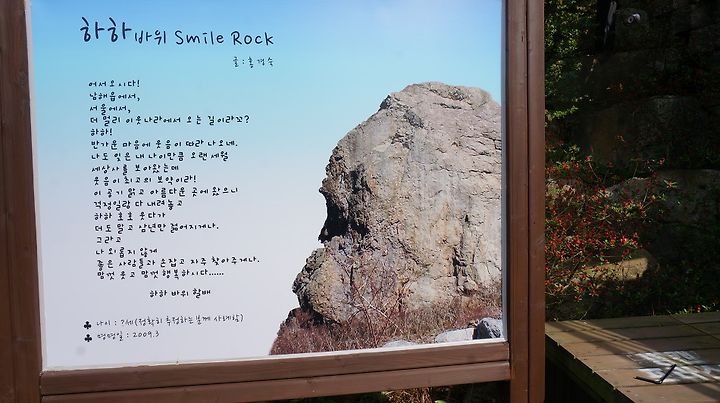 하하 바위 Smile Rock
글 : 홍경숙
어서 오시다!
남해읍에서,
서울에서,
더 멀리 이웃나라에서 오는 길이라꼬?
하하!
반가운 마음에 웃음이 따라 나오네.
나도 잊은 내 나이만큼 오랜 세월
세상사를 보아왔는데
웃음이 최고의 보약이라!
이 공기 맑고 아름다운 곳에 왔으니
걱정일랑 다 내려놓고
하하 호호 웃다가
더도 말고 삼년만 젊어지게나.
그라고
나 외롭지 않게
좋은 사람들과 손잡고 자주 찾아주게나.
맘껏 웃고 맘껏 행복하시다......
하하 바위 할배
♣ 나이 : ?세(정확히 측정하는 분께 사례함)
♣ 명명일 : 2009.3